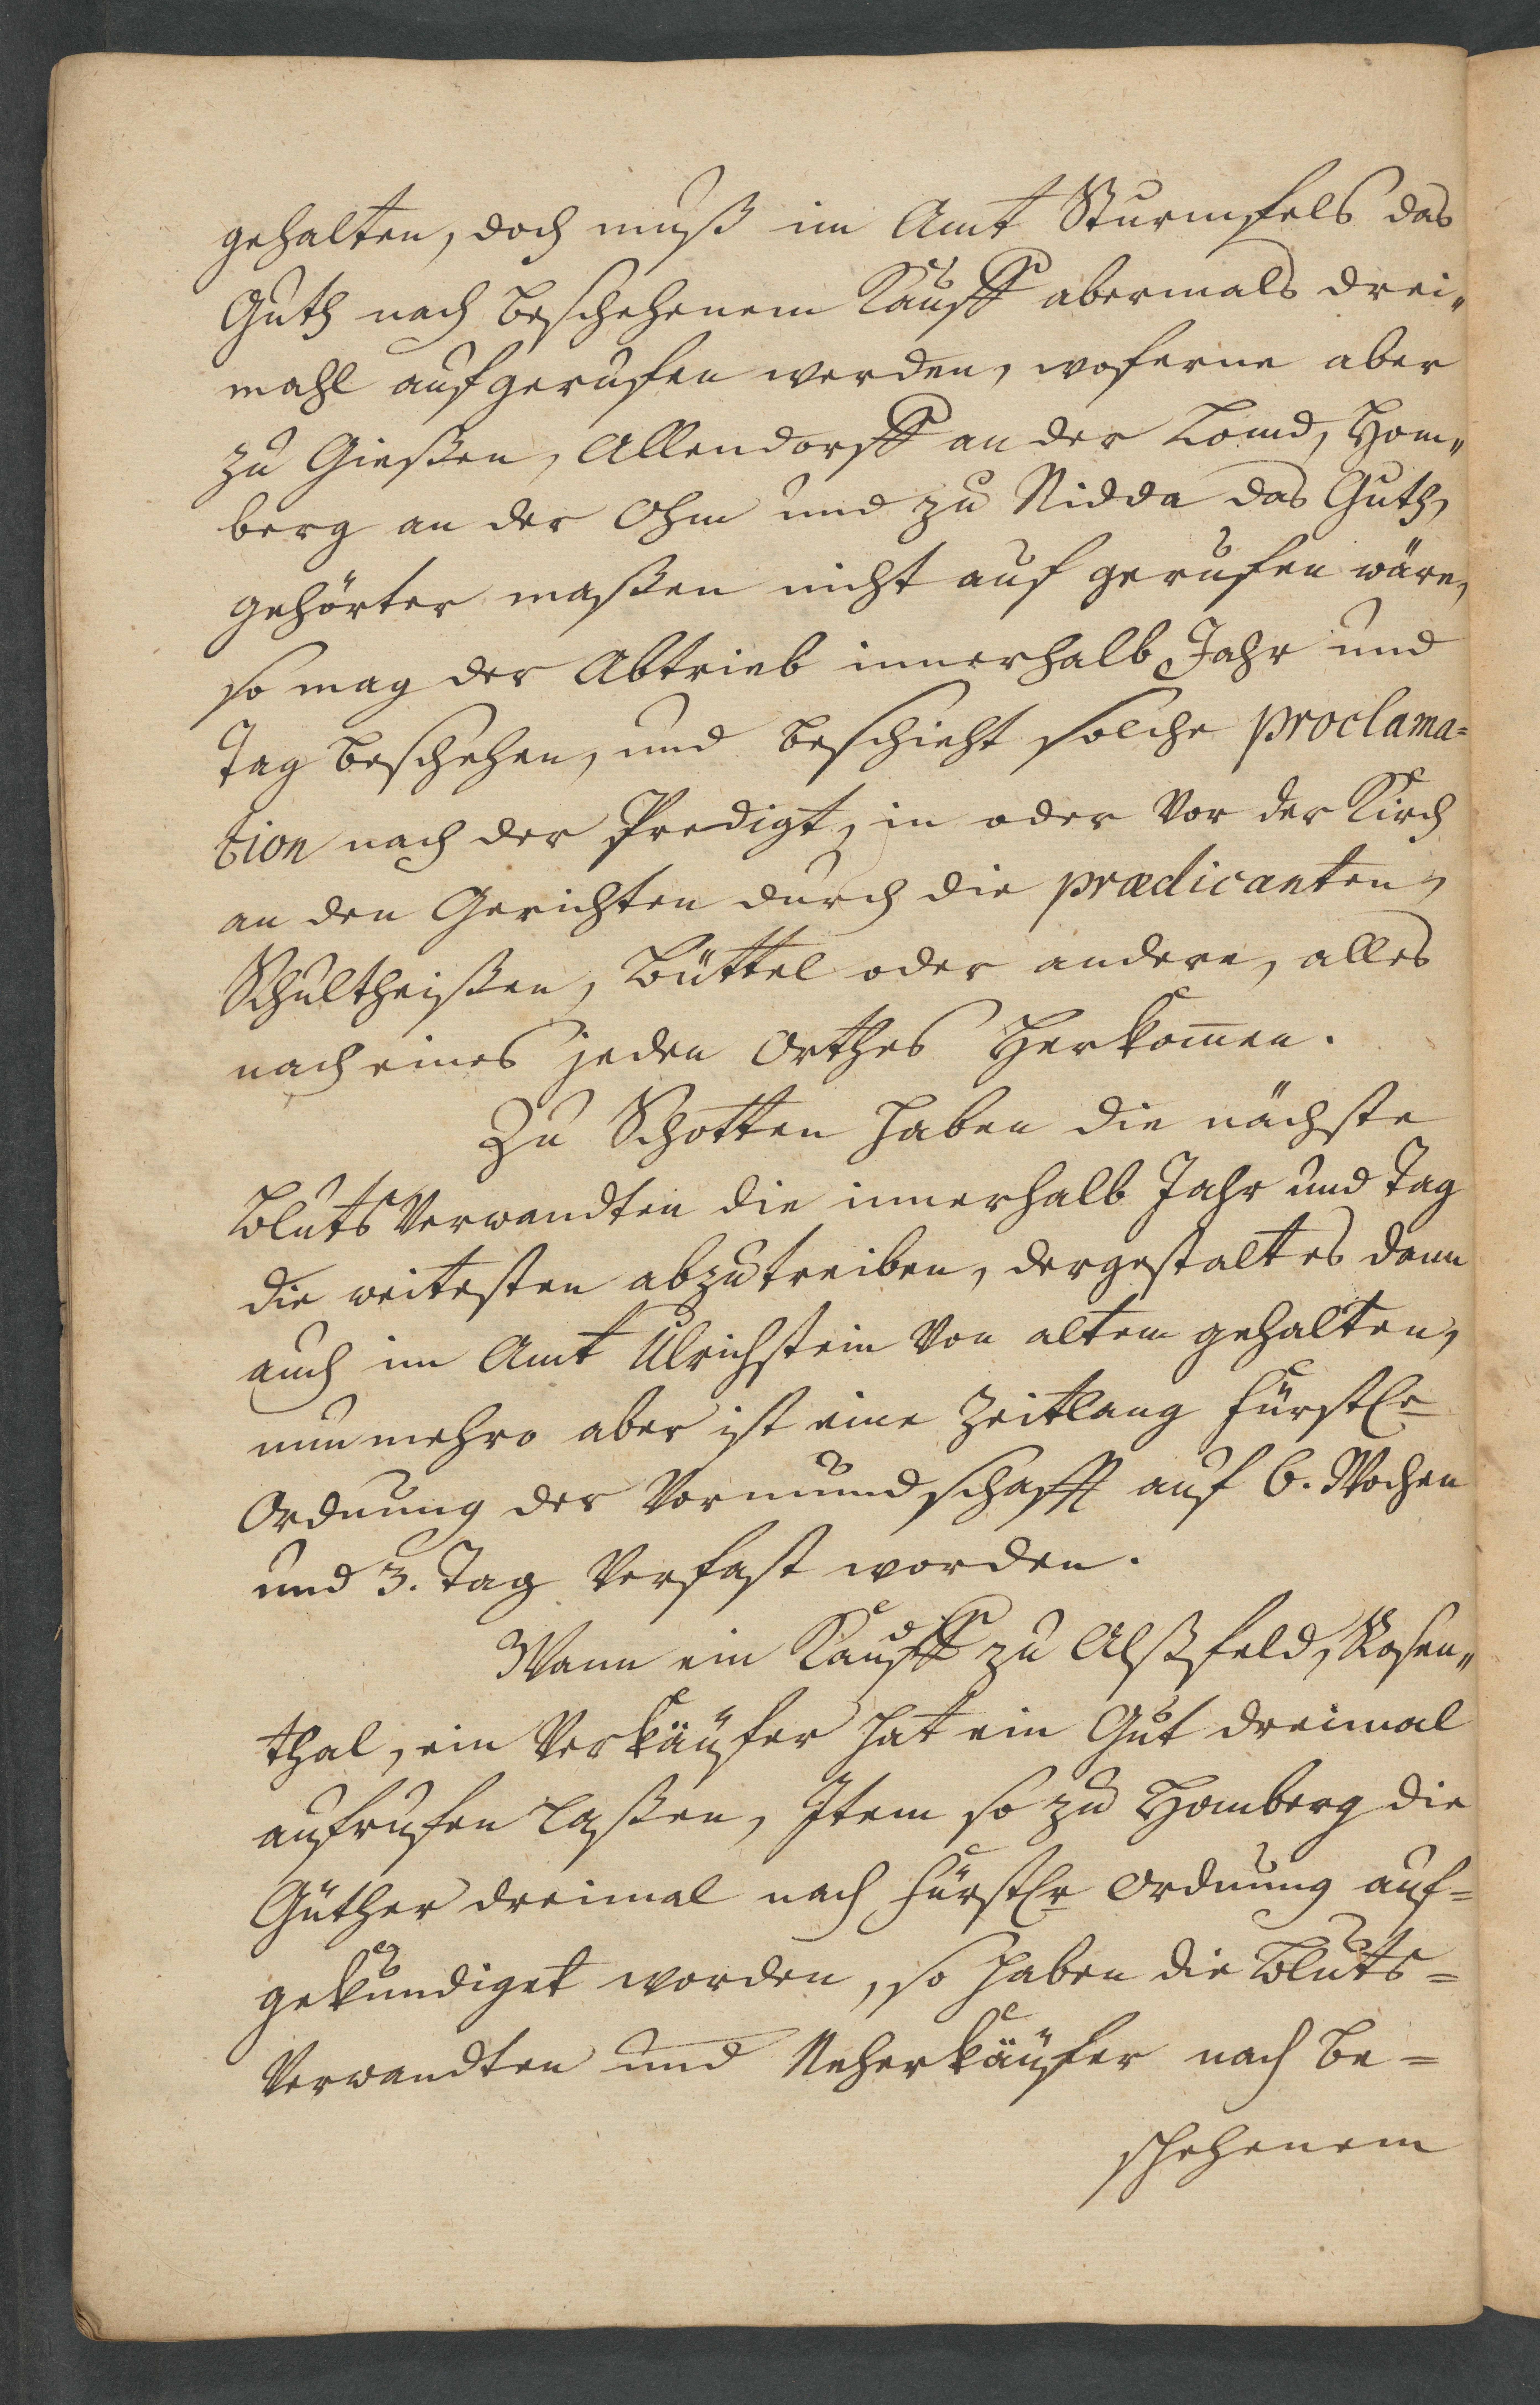 gehalten, doch muß im Amt Sturmfels das
Guth nach beschehenem Kauff abermals drei„
mahl aufgerufen werden, woferne aber
zu Gießen, Allendorff an der Lomd, Hom„
berg an der Ohm und zu Nidda das Guth,
gehörter maßen nicht auf gerufen wäre,
so mag der Abtrieb innerhalb Jahr und
Tag beschehen, und beschieht solche proclama=
tion nach der Predigt, in oder vor der Kirch
an den Gerichten durch die prædicanten,
Schultheißen, Büttel oder andere, alles
nach eines jeden Orthes Herkom̄en.
Zu Schotten haben die nächste
Bluts Verwandten die innerhalb Jahr und Tag
die weitesten abzutreiben, dergestalt es dann
auch im Amt Ulrichstein von altem gehalten,
nunmehro aber ist eine Zeitlang fürstlr
Ordnung der Vormundschafft auf 6. Wochen
und 3. Tag verfast worden.
Wann ein Kauff zu Alßfeld, Rosen„
thal, ein Verkäufer hat ein Gut dreimal
aufrufen laßen, Item so zu Homberg die
Güther dreimal nach fürstlr Ordnung auf=
gekündiget worden, so haben die Bluts=
Verwandten und Neherkäufer nach be=
schehenem